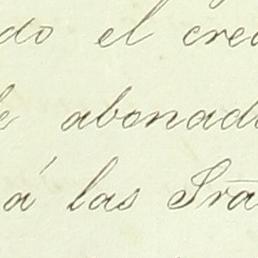 do el cre
le abonad
á las Sra